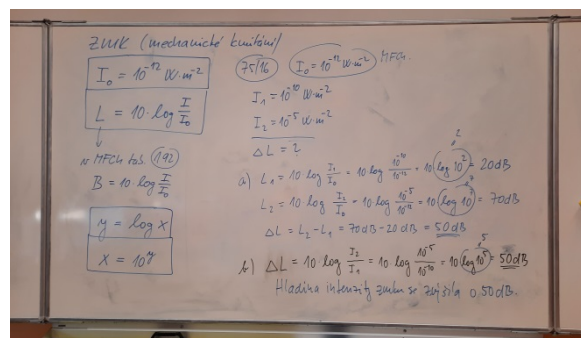 ZVUK (mechanické kmitání)
I₀ = 10⁻¹² W·m⁻²
L = 10·log I/I₀
v MFCh tab. 192
B = 10·log I/I₀
y = log x
x = 10^y
75/16 I₀ = 10⁻¹² W·m⁻² MFCh.
I₁ = 10⁻¹⁰ W·m⁻²
I₂ = 10⁻⁵ W·m⁻²
ΔL = ?
a) L₁ = 10·log I₁/I₀ = 10 log 10⁻¹⁰/10⁻¹² = 10 log 10² = 20dB
2
L₂ = 10·log I₂/I₀ = 10·log 10⁻⁵/10⁻¹² = 10 log 10⁷ = 70dB
7
ΔL = L₂ - L₁ = 70dB - 20 dB = 50dB
b) ΔL = 10·log I₂/I₁ = 10 log 10⁻⁵/10⁻¹⁰ = 10 log 10⁵ = 50dB
5
Hladina intenzity zvuku se zvýšila o 50dB.